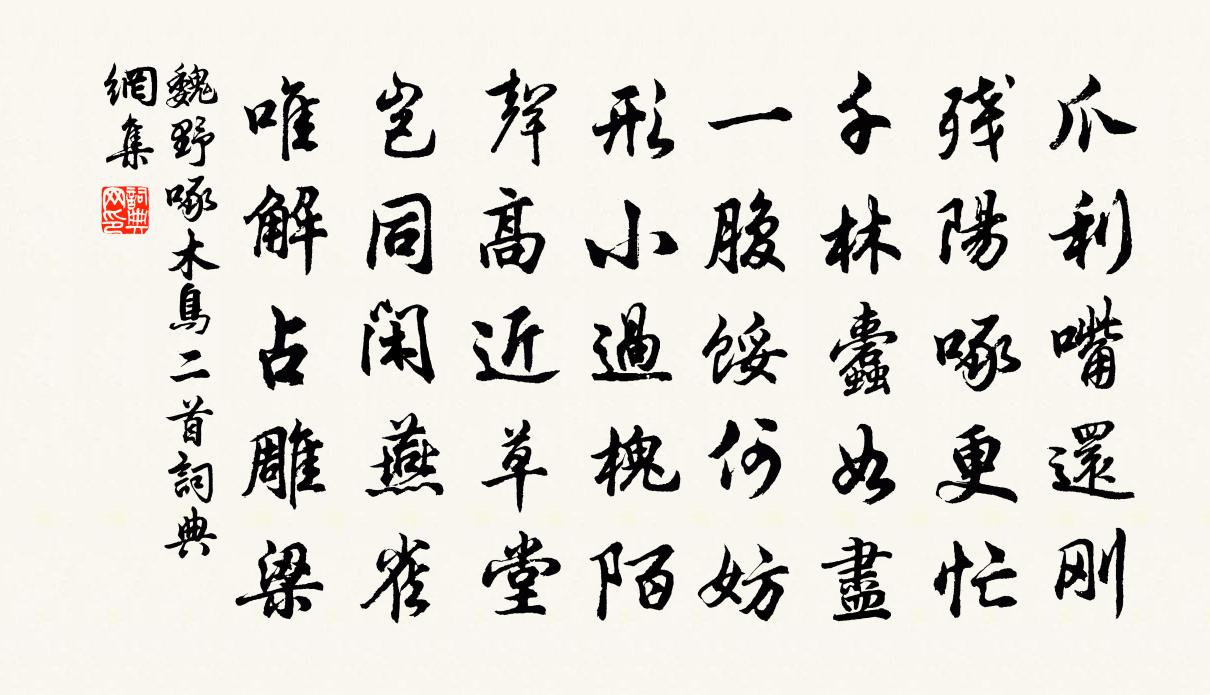 爪利嘴還剛
殘陽啄更忙
千林蠹如盡
一腹餒何妨
形小過槐陌
聲高近草堂
豈同閑燕雀
唯解占雕梁
魏野啄木鳥二首詞典
網集
詞典網印